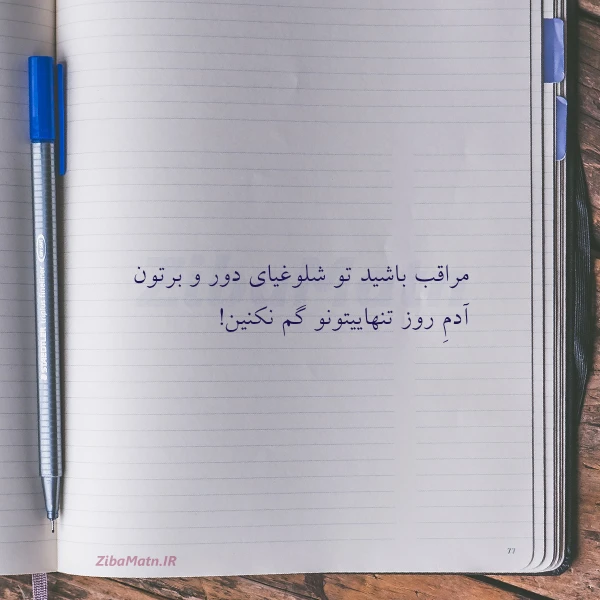 مراقب باشید تو شلوغیای دور و برتون
آدمِ روز تنهاییتونو گم نکنین!
77
ZibaMatn.IR